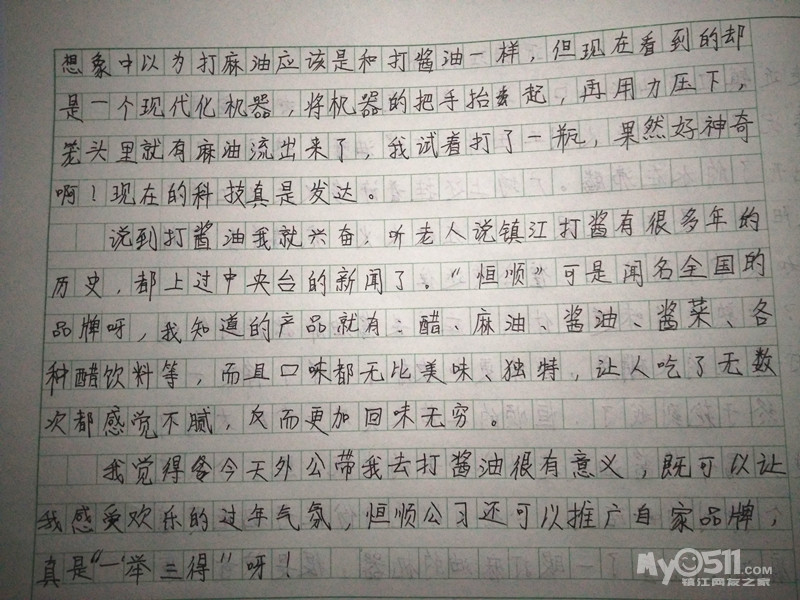 想象中以为打麻油应该是和打酱油一样，但现在看到的却
是一个现代化机器，将机器的把手抬起，再用力压下，
笼头里就有麻油流出来了，我试着打了一瓶，果然好神奇
啊！现在的科技真是发达。
说到打酱油我就兴奋，听老人说镇江打酱有很多年的
历史，都上过中央台的新闻了。“恒顺”可是闻名全国的
品牌呀，我知道的产品就有：醋、麻油、酱油、酱菜、各
种醋饮料等，而且口味都无比美味、独特，让人吃了无数
次都感觉不腻，反而更加回味无穷。
我觉得今天外公带我去打酱油很有意义，既可以让
我感受欢乐的过年气氛，恒顺公习还可以推广自家品牌，
真是“一举三得”呀！
My0511.com
镇江网友之家